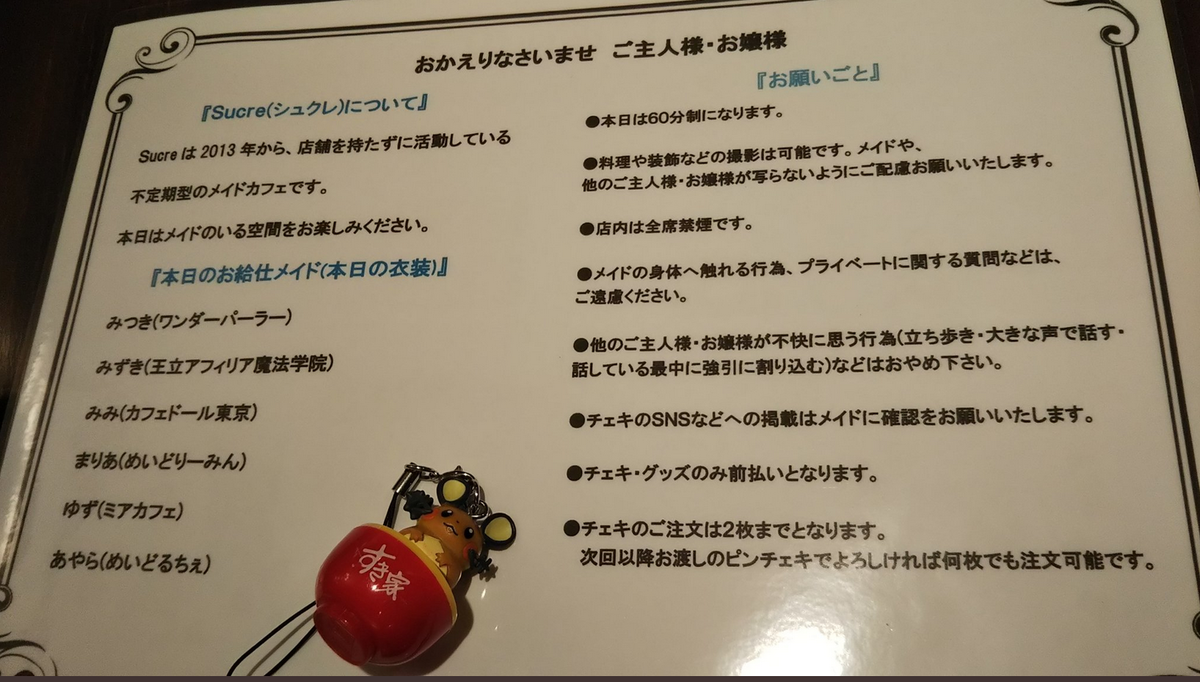 おかえりなさいませ ご主人様・お嬢様
『Sucre(シュクレ)について』
Sucre は 2013 年から、店舗を持たずに活動している
不定期型のメイドカフェです。
本日はメイドのいる空間をお楽しみください。
『本日のお給仕メイド(本日の衣装)』
みつき(ワンダーパーラー)
みずき(王立アフィリア魔法学院)
みみ(カフェドール東京)
まりあ(めいどりーみん)
ゆず(ミアカフェ)
あやら(めいどるちぇ)
『お願いごと』
●本日は60分制になります。
●料理や装飾などの撮影は可能です。メイドや、
他のご主人様・お嬢様が写らないようにご配慮お願いいたします。
●店内は全席禁煙です。
●メイドの身体へ触れる行為、プライベートに関する質問などは、
ご遠慮ください。
●他のご主人様・お嬢様が不快に思う行為(立ち歩き・大きな声で話す・
話している最中に強引に割り込む)などはおやめ下さい。
●チェキのSNSなどへの掲載はメイドに確認をお願いいたします。
●チェキ・グッズのみ前払いとなります。
●チェキのご注文は2枚までとなります。
次回以降お渡しのピンチェキでよろしければ何枚でも注文可能です。
すき家